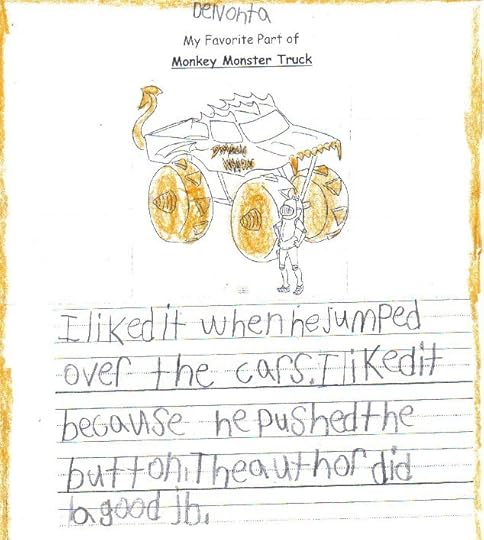 Delvonta
My Favorite Part of
Monkey Monster Truck
I liked it when he jumped
over the cars. I liked it
because he pushed the
button. The author did
a good jb.